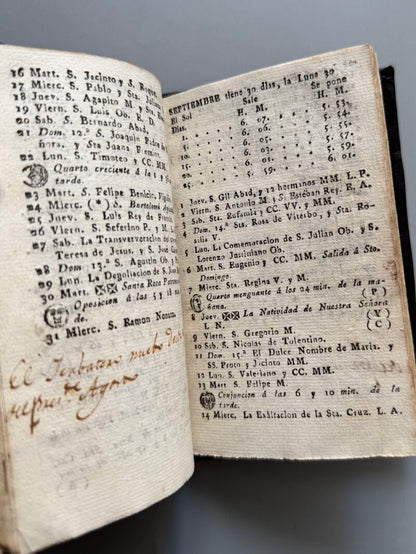 16 Mart. S. Jacinto y S. Roque
17 Mierc. S. Pablo y Sta. Julia
18 Juev. S. Agapito M. y Sta.
19 Viern. S. Luis Ob. E. D.
20 Sab. S. Bernardo Abad.
21 Dom. 12.ª S. Joaquin Padre de
ñora, y Sta Juana Fremiot
22 Lun. S. Timoteo y CC. MM.
Quarto creciente á la 1 y
tarde.
23 Mart. S. Felipe Benicio, Vigilia
24 Mierc. (*) S. Bartolomé
25 Juev. S. Luis Rey de Francia
26 Viern. S. Seferino P. y M.
27 Sab. La Transverberacion del
Teresa de Jesus, y S. José
28 Dom. 13.ª S. Agustin Ob. y
29 Lun. La Degollacion de S. Juan
30 Mart. XX Santa Rosa
Oposicion á las 5 y 18 m.
31 Mierc. S. Ramon Nonato.
el
mucho
Agosto
SEPTIEMBRE tiene 30 dias, la Luna 30
El Sol Sale Se pone
Dias. H. M. H. M.
1. 6. 07. 5. 53.
5. 6. 06. 5. 54.
10. 6. 05. 5. 55.
15. 6. 02. 5. 58.
20. 6. 01. 5. 59.
25. 5. 59. 6. 01.
1 Juev. S. Gil Abad, y 12 hermanos MM. L. P.
2 Viern. S. Antonio M. y S. Esteban Rey. E. A.
3 Sab. Sta. Eufemia y CC. VV. y MM.
4 Dom. 14.ª Sta. Rosa de Viterbo, y Sta. Ro-
salia V.
5 Lun. La Comemoracion de S. Julian Ob. y S.
Lorenzo Justiniano Ob.
6 Mart. S. Eugenio y CC. MM. Salida á Sto.
Domingo.
7 Mierc. Sta. Regina V. y M.
Quarto menguante á las 24 min. de la ma-
ñana. (P)
8 Juev. XX La Natividad de Nuestra Señora
L. N. (V) (C)
9 Viern. S. Gregorio M.
10 Sab. S. Nicolas de Tolentino.
11 Dom. 15.ª El Dulce Nombre de Maria. y
SS. Proto y Jacinto MM.
12 Lun S. Valeriano y CC. MM.
13 Mart S. Felipe M.
Conjuncion á las 6 y 10 min. de la
tarde.
14 Mierc. La Exâltacion de la Sta. Cruz. L. A.